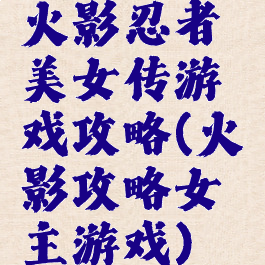 火影忍者
美女传游
戏攻略(火
影攻略女
主游戏)